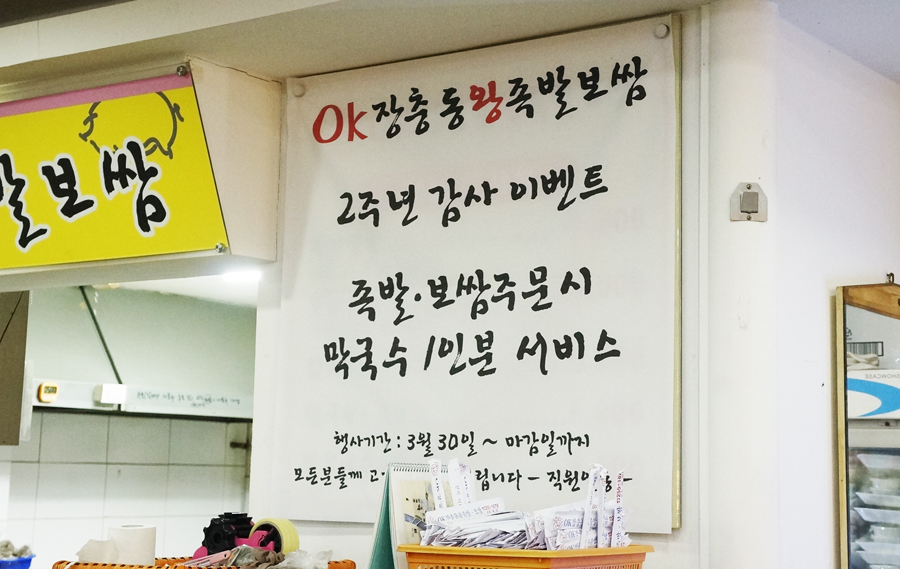 발보쌈
Ok장충동왕족발보쌈
2주년 감사 이벤트
족발·보쌈주문시
막국수 1인분 서비스
행사기간 : 3월 30일 ~ 마감일까지
모든분들께 립니다 - 직원
SHOWCASE